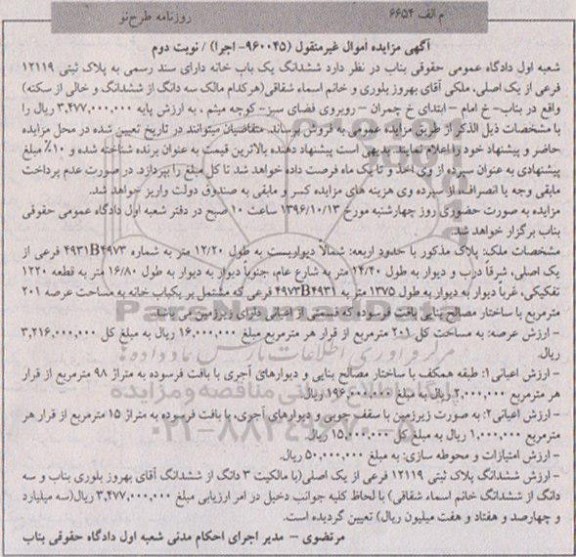 م الف ۶۶۵۴ روزنامه طرح‌نو
آگهی مزایده اموال غیرمنقول (۹۶۰۰۴۵- اجرا) / نوبت دوم
شعبه اول دادگاه عمومی حقوقی بناب در نظر دارد ششدانگ یک باب خانه دارای سند رسمی به پلاک ثبتی ۱۲۱۱۹
فرعی از یک اصلی، ملکی آقای بهروز بلوری و خانم اسماء شقاقی (هرکدام مالک سه دانگ از ششدانگ و خالی از سکنه)
واقع در بناب- خ امام – ابتدای خ چمران – روبروی فضای سبز- کوچه میثم ، به ارزش پایه ۳,۴۷۷,۰۰۰,۰۰۰ ریال را
با مشخصات ذیل الذکر از طریق مزایده عمومی به فروش برساند. متقاضیان میتوانند در تاریخ تعیین شده در محل مزایده
حاضر و پیشنهاد خود را اعلام نمایند. بدیهی است پیشنهاد دهنده بالاترین قیمت به عنوان برنده شناخته شده و ۱۰٪ مبلغ
پیشنهادی به عنوان سپرده از وی اخذ و تا یک ماه فرصت داده خواهد شد تا کل مبلغ را بپردازد. در صورت عدم پرداخت
مابقی وجه یا انصراف، از سپرده وی هزینه های مزایده کسر و مابقی به صندوق دولت واریز خواهد شد.
مزایده به صورت حضوری روز چهارشنبه مورخ ۱۳۹۶/۱۰/۱۳ ساعت ۱۰ صبح در دفتر شعبه اول دادگاه عمومی حقوقی
بناب برگزار خواهد شد.
مشخصات ملک: پلاک مذکور با حدود اربعه: شمالاً دیواریست به طول ۱۲/۲۰ متر به شماره ۴۹۳۱B۴۹۷۳ فرعی از
یک اصلی، شرقاً درب و دیوار به طول ۱۴/۴۰ متر به شارع عام، جنوباً دیوار به دیوار به طول ۱۶/۸۰ متر به قطعه ۱۲۲۰
تفکیکی، غرباً دیوار به دیوار به طول ۱۳۷۵ متر به ۴۹۷۳B۴۹۳۱ فرعی که مشتمل بر یکباب خانه به مساحت عرصه ۲۰۱
مترمربع با ساختار مصالح بنایی بافت فرسوده که قسمتی از اعیانی دارای زیرزمین می باشد.
- ارزش عرصه: به مساحت کل ۲۰۱ مترمربع از قرار هر مترمربع مبلغ ۱۶,۰۰۰,۰۰۰ ریال به مبلغ کل ۳,۲۱۶,۰۰۰,۰۰۰
ریال.
- ارزش اعیانی۱: طبقه همکف با ساختار مصالح بنایی و دیوارهای آجری با بافت فرسوده به متراژ ۹۸ مترمربع از قرار
هر مترمربع ۲,۰۰۰,۰۰۰ ریال به مبلغ ۱۹۶,۰۰۰,۰۰۰ ریال.
- ارزش اعیانی۲: به صورت زیرزمین با سقف چوبی و دیوارهای آجری، با بافت فرسوده به متراژ ۱۵ مترمربع از قرار هر
مترمربع ۱,۰۰۰,۰۰۰ ریال به مبلغ کل ۱۵,۰۰۰,۰۰۰ ریال.
- ارزش امتیازات و محوطه سازی: به مبلغ ۵۰,۰۰۰,۰۰۰ ریال.
- ارزش ششدانگ پلاک ثبتی ۱۲۱۱۹ فرعی از یک اصلی(با مالکیت ۳ دانگ از ششدانگ آقای بهروز بلوری بناب و سه
دانگ از ششدانگ خانم اسماء شقاقی) با لحاظ کلیه جوانب دخیل در امر ارزیابی مبلغ ۳,۴۷۷,۰۰۰,۰۰۰ ریال(سه میلیارد
و چهارصد و هفتاد و هفت میلیون ریال) تعیین گردیده است.
مرتضوی – مدیر اجرای احکام مدنی شعبه اول دادگاه حقوقی بناب
ParsNamadData
مرکز فرآوری اطلاعات پارس نماد داده ها
پایگاه اطلاع رسانی مناقصه و مزایده
۰۲۱-۸۸۳۴۹۶۷۰-۵